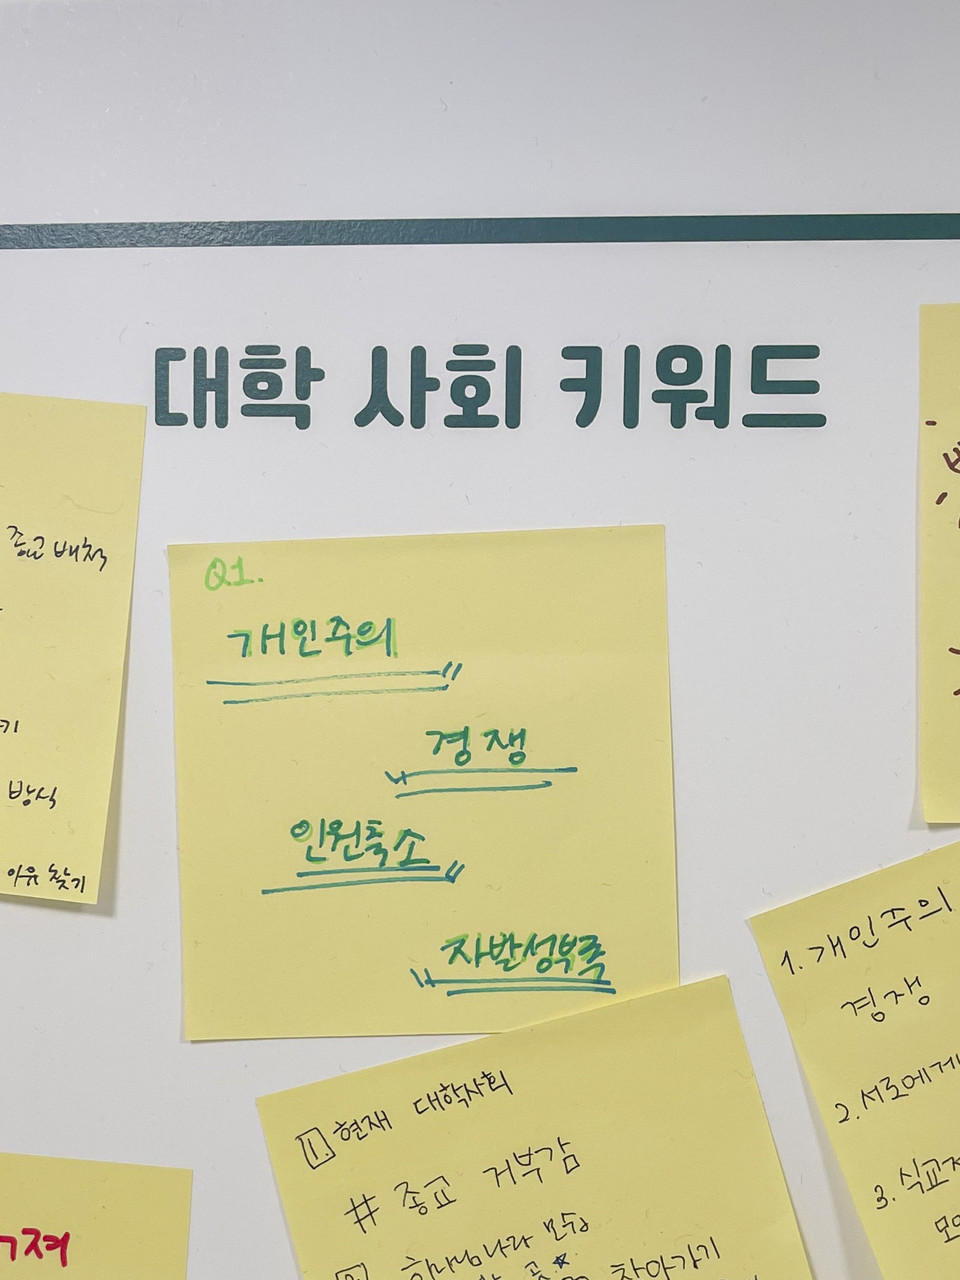 대학 사회 키워드
종교 배척
방식
찾기
Q1.
개인주의
경쟁
인원축소
자발성부족
1. 현재 대학사회
# 종교 거부감
하나님나라 모습
찾아가기
1. 개인주의
경쟁
2. 서로에게
3.